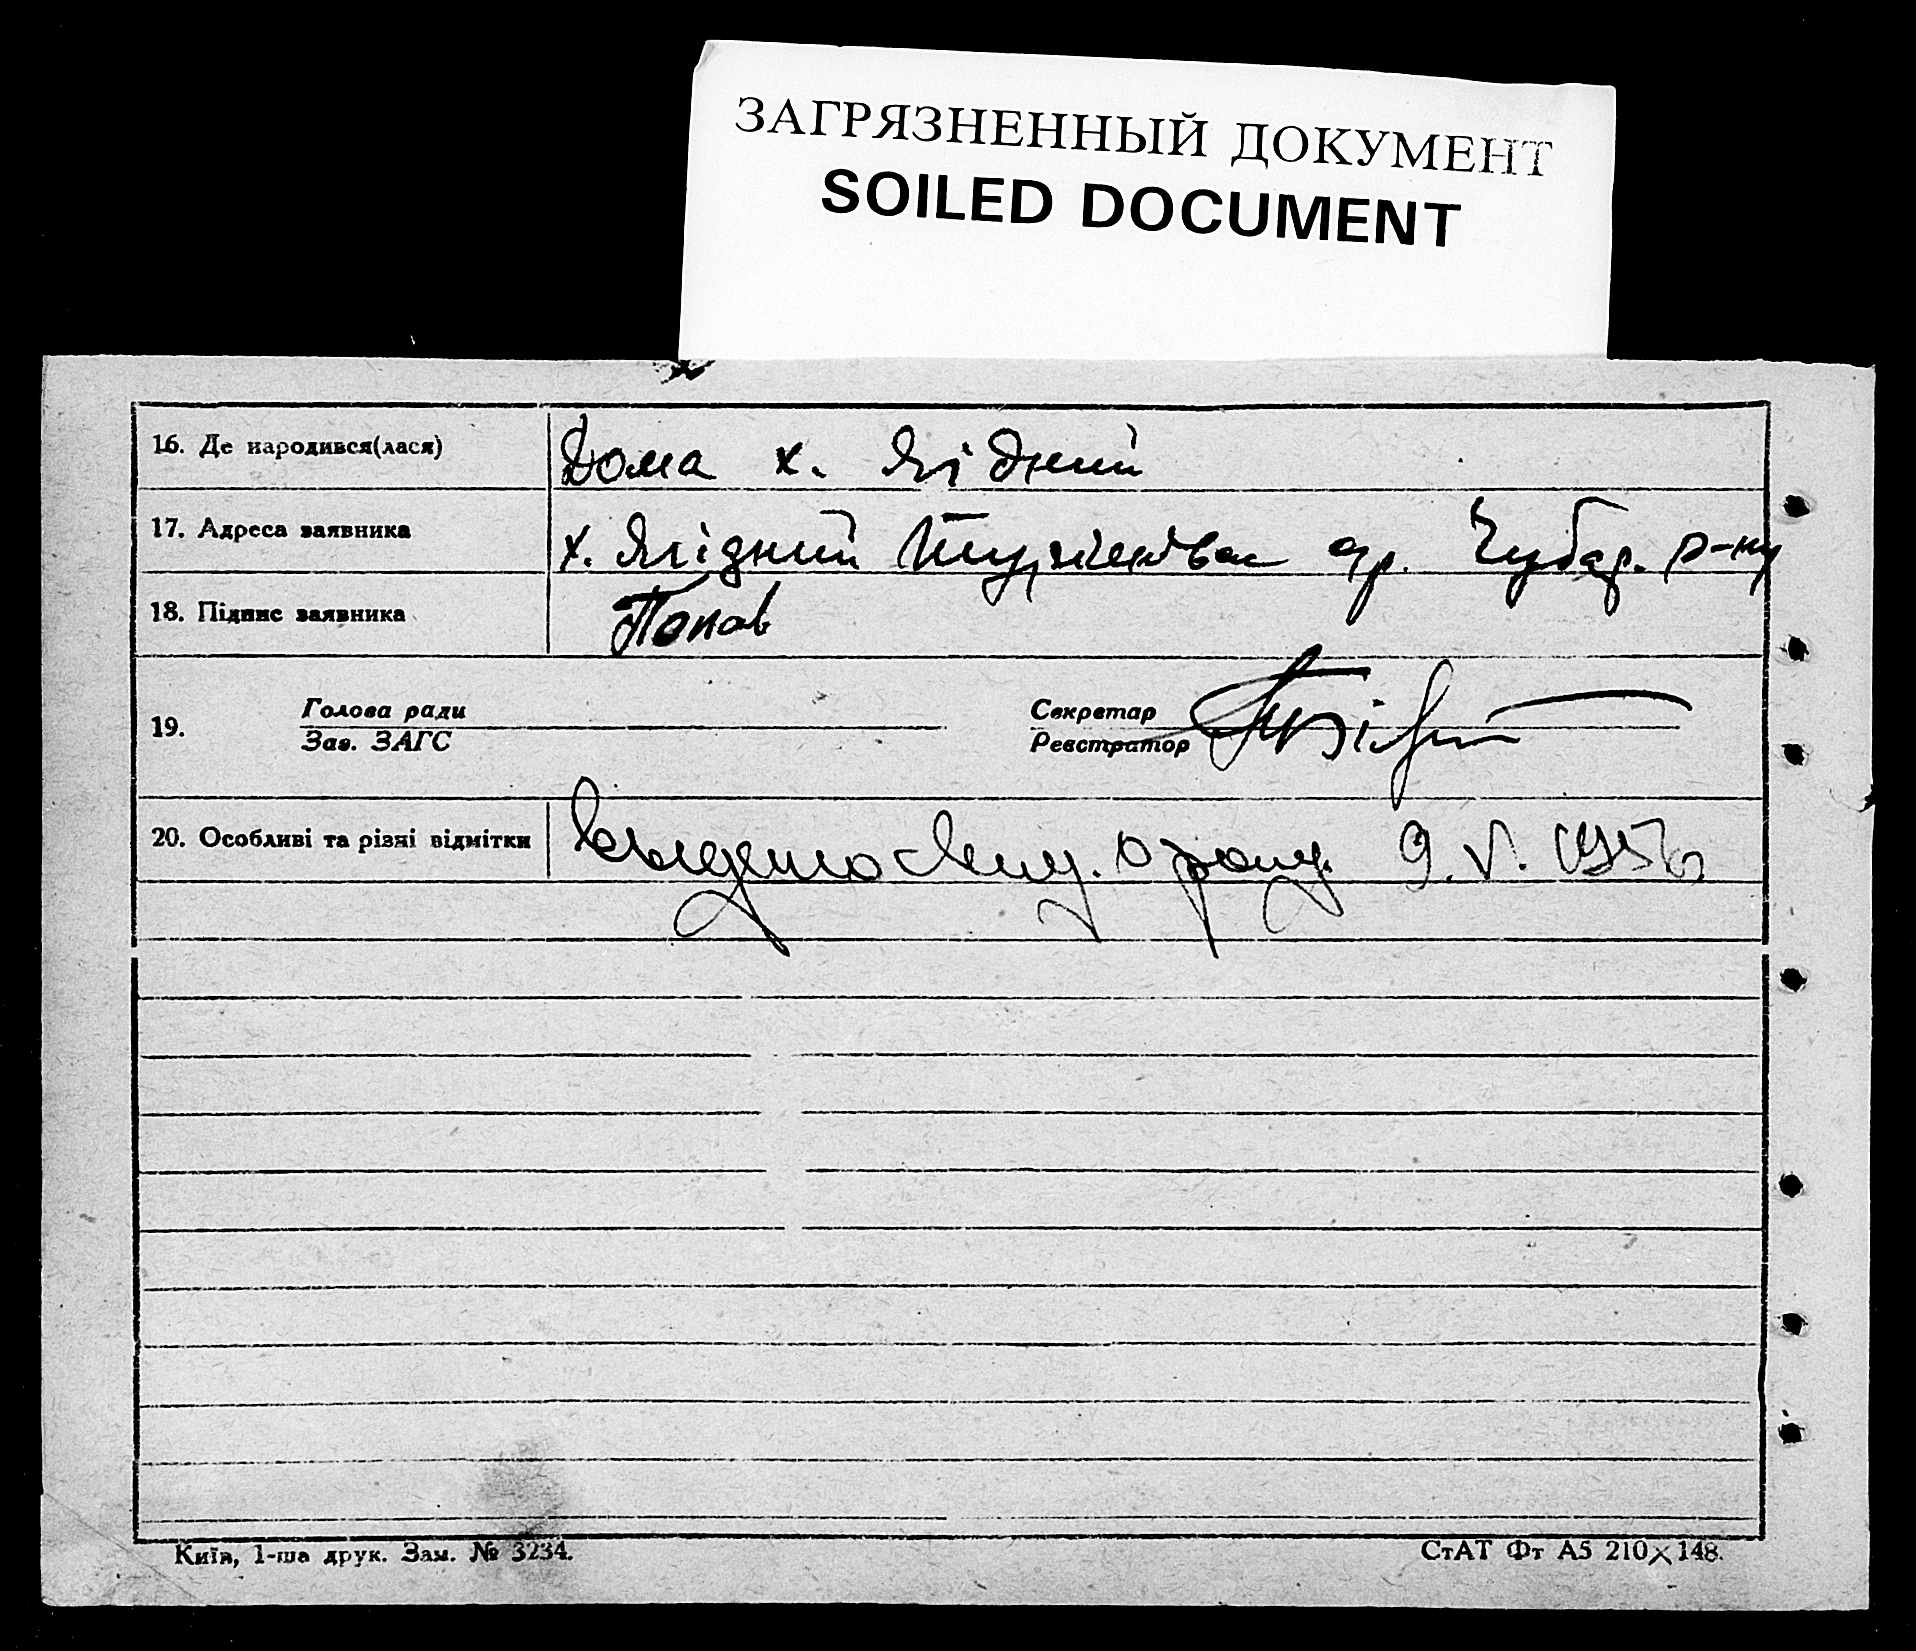 ЗАГРЯЗНЕННЫЙ ДОКУМЕНТ
SOILED DOCUMENT
16. Де народився(лася) Дома х. Ягідний
17. Адреса заявника х. Ягідний р-ну
18. Підпис заявника Попов
19. Голова ради
Зав. ЗАГС
Секретар
Реєстратор
20. Особливі та різні відмітки 9. V.
Київ, 1-ша друк. Зам. № 3234.
СтАТ Фт А5 210×148.